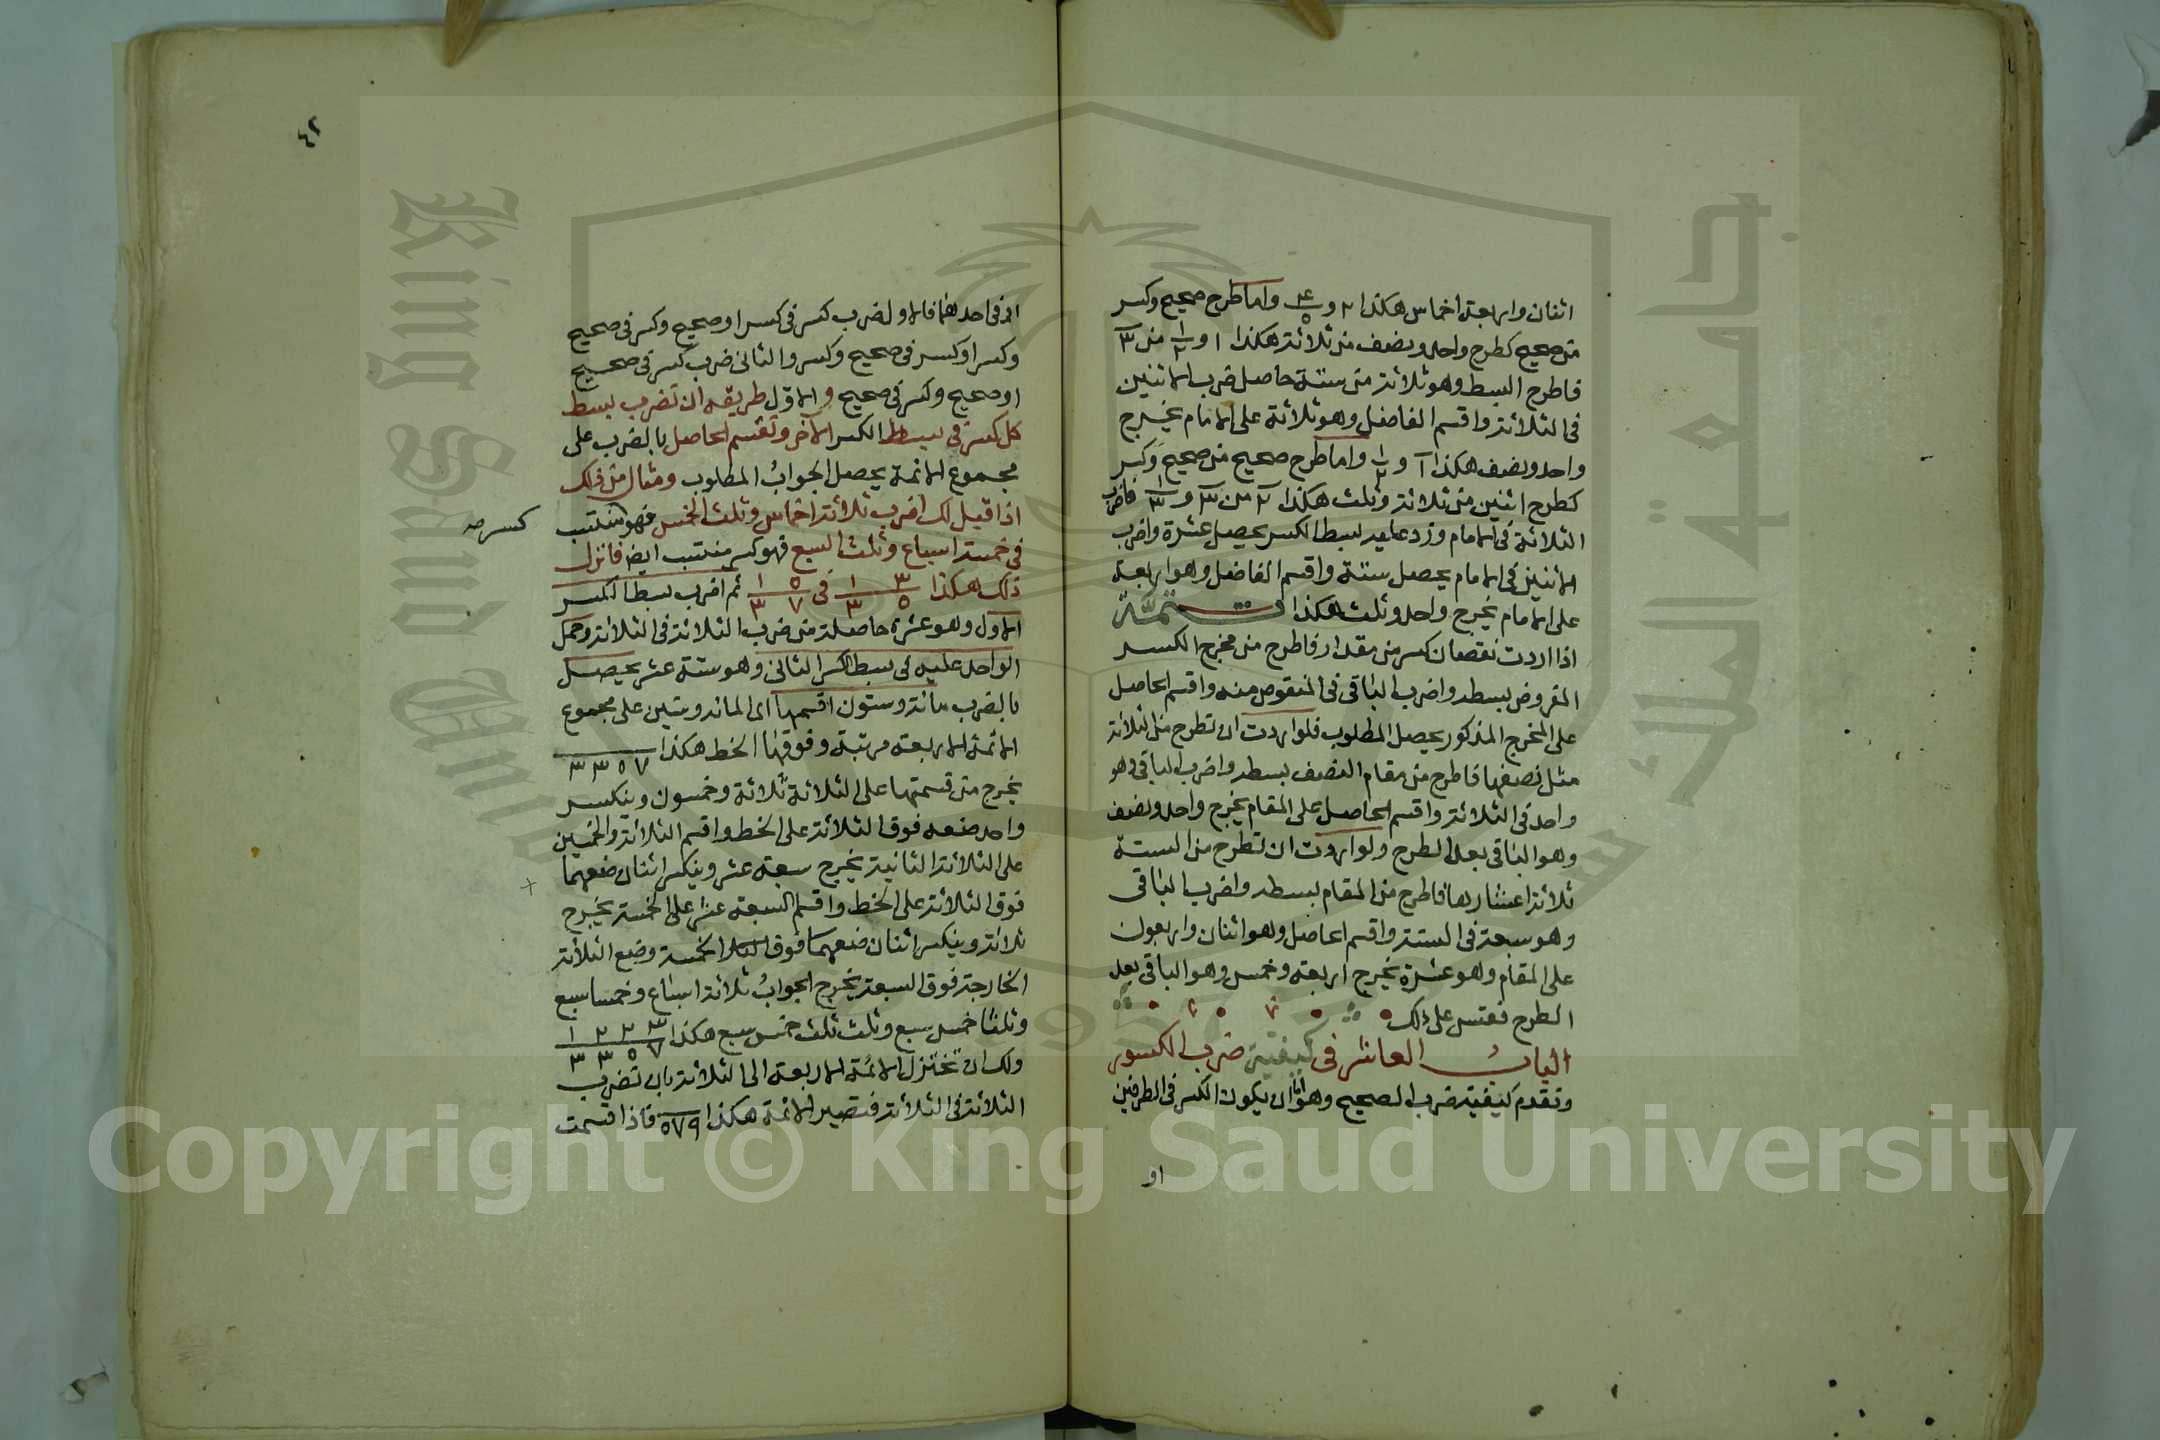 اثنان واربعة اخماس هكذا ٢ و ٤/٥ واما طرح صحيح وكسر
من صحيح كطرح واحد ونصف من ثلاثة هكذا ١ و ١/٢ من ٣
فاطرح البسط وهو ثلاثة من ستة حاصل ضرب الاثنين
في الثلاثة واقسم الفاضل وهو ثلاثة على الامام يخرج
واحد ونصف هكذا ١ و ١/٢ واما طرح صحيح من صحيح وكسر
كطرح اثنين من ثلاثة وثلث هكذا ٢ من ٣ و ١/٣ فاضرب
الثلاثة في الامام وزد عليه بسط الكسر يحصل عشرة واضرب
الاثنين في الامام يحصل ستة واقسم الفاضل وهو اربعة
على الامام يخرج واحد وثلث هكذا تتمة
اذا اردت نقصان كسر من مقدار فاطرح من مخرج الكسر
المفروض بسطه واضرب الباقي في المنقوص منه واقسم الحاصل
على المخرج المذكور يحصل المطلوب فلو اردت ان تطرح من الثلاثة
مثل نصفها فاطرح من مقام النصف بسطه واضرب الباقي وهو
واحد في الثلاثة واقسم الحاصل على المقام يخرج واحد ونصف
وهو الباقي بعد الطرح ولو اردت ان تطرح من الستة
ثلاثة اعشارها فاطرح من المقام بسطه واضرب الباقي
وهو سبعة في الستة واقسم الحاصل وهو اثنان واربعون
على المقام وهو عشرة يخرج اربعة وخمس وهو الباقي بعد
الطرح فقس على ذلك
الباب العاشر في كيفية ضرب الكسور
وتقدم كيفية ضرب الصحيح وهو اما ان يكون الكسر في الطرفين
او
٤٢
او في احدهما فالاول ضرب كسر في كسر او صحيح وكسر في صحيح
وكسر او كسر في صحيح وكسر والثاني ضرب كسر في صحيح
او صحيح وكسر في صحيح والاول طريقه ان تضرب بسط
كل كسر في بسط الكسر الآخر وتقسم الحاصل بالضرب على
مجموع الائمة يحصل الجواب المطلوب ومثال من ذلك
اذا قيل لك اضرب ثلاثة اخماس وثلث الخمس فهو منتسب
كسر صح
في خمسة اسباع وثلث السبع فهو كسر منتسب ايضا فانزل
ذلك هكذا ٣ ١/٥ ٣ في ٥ ١/٧ ٣ ثم اضرب بسط الكسر
الاول وهو عشرة حاصلة من ضرب الثلاثة في الثلاثة وحمل
الواحد عليه في بسط الكسر الثاني وهو ستة عشر يحصل
بالضرب مائة وستون اقسمها اى المائة وستين على مجموع
الائمة الاربعة مرتبة وفوقها الخط هكذا ٧ ٥ ٣ ٣
يخرج من قسمتها على الثلاثة ثلاثة وخمسون وينكسر
واحد ضعه فوق الثلاثة على الخط واقسم الثلاثة والخمسين
على الثلاثة الثانية يخرج سبعة عشر وينكسر اثنان ضعهما
فوق الثلاثة على الخط واقسم السبعة عشر على الخمسة يخرج
ثلاثة وينكسر اثنان ضعهما فوق الخمسة وضع الثلاثة
الخارجة فوق السبعة يخرج الجواب ثلاثة اسباع وخمسا سبع
وثلثا خمس سبع وثلث ثلث خمس سبع هكذا ٣ ٢ ٢ ١/٧ ٥ ٣ ٣
ولك ان تختزل الائمة الاربعة الى الثلاثة بان تضرب
الثلاثة في الثلاثة فتصير الائمة هكذا ٥٧٩ فاذا قسمت
King Saud University
جامعة الملك سعود
1957
Copyright © King Saud University